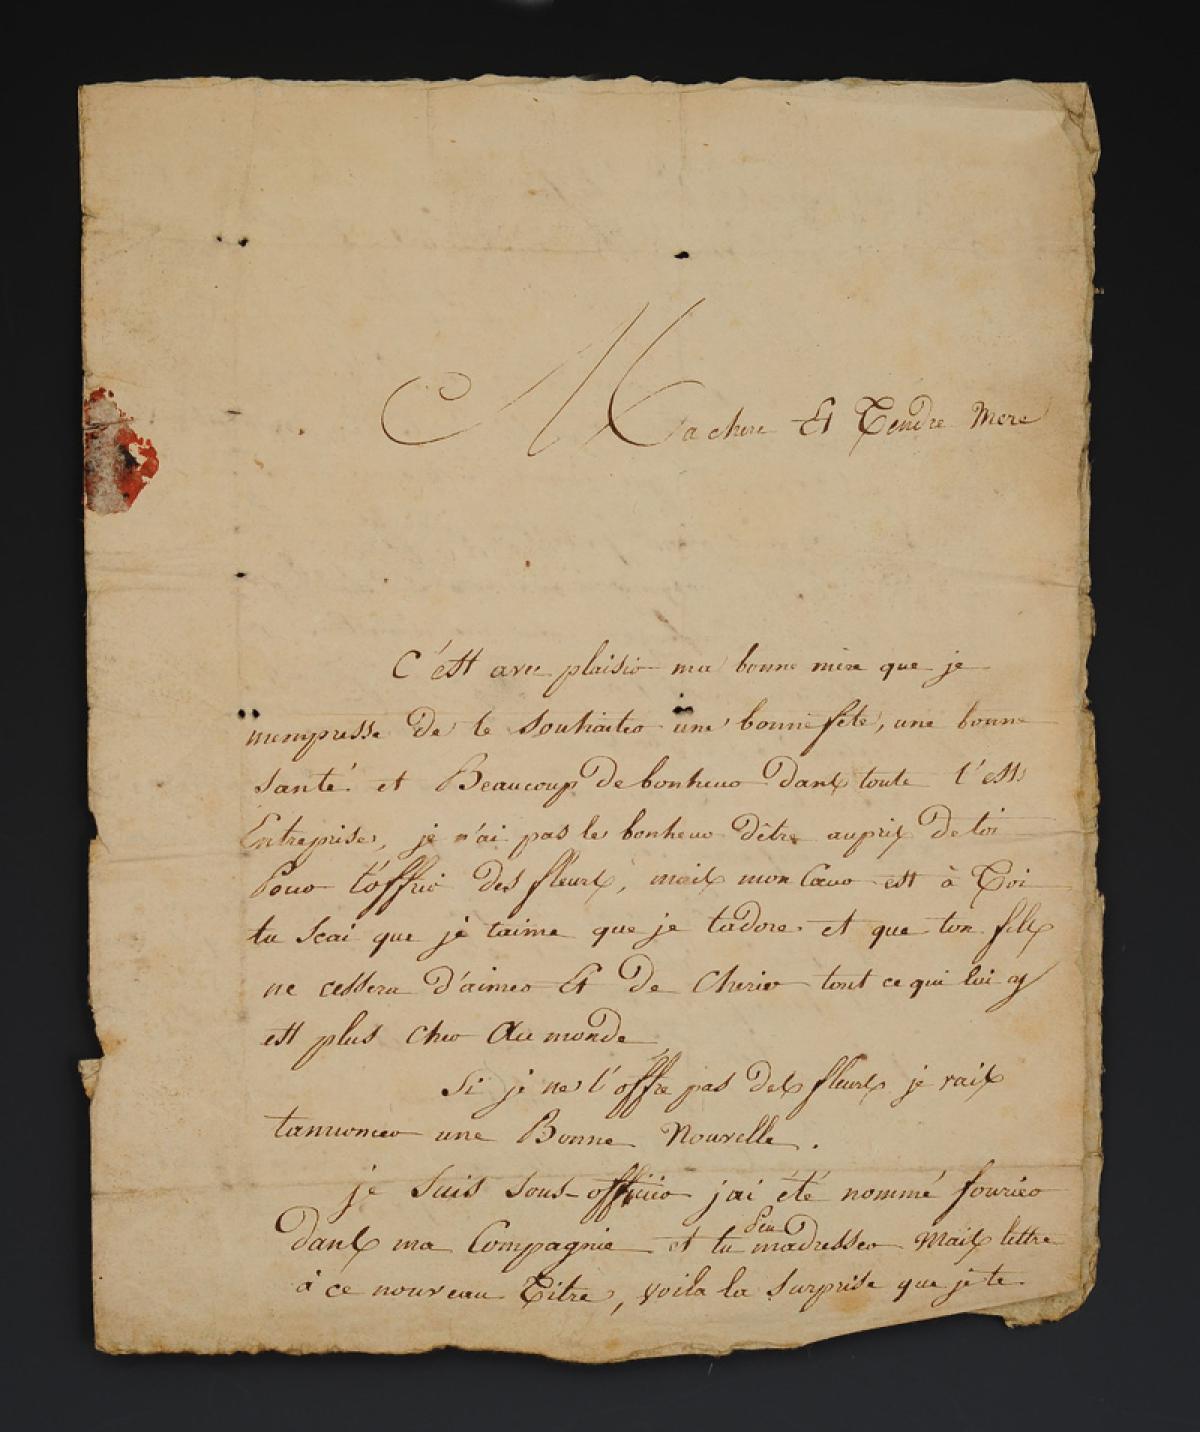 Ma chere Et Tendre Mere
C'est avec plaisir ma bonne mère que je
mempresse De te Souhaiter une bonne fête, une bonne
santé et Beaucoup De bonheur Dans toute t'est
Entreprises, je n'ai pas le bonheur D'être auprix De toi
Pour t'offrir Des fleurs, mais mon Cœur est à Toi
tu Scai que je taime que je tadore et que ton fils
ne cessera D'aimer Et De Cherier tout ce qui lui y
est plus Cher Au monde
Si je ne t'offre pas Des fleurs je vais
tannoncer une Bonne Nouvelle.
je Suis Sous-officier jai été nommé fourier
Dans ma Compagnie et tu peu madresser Mais lettre
à ce nouveau Titre, voila la Surprise que je te